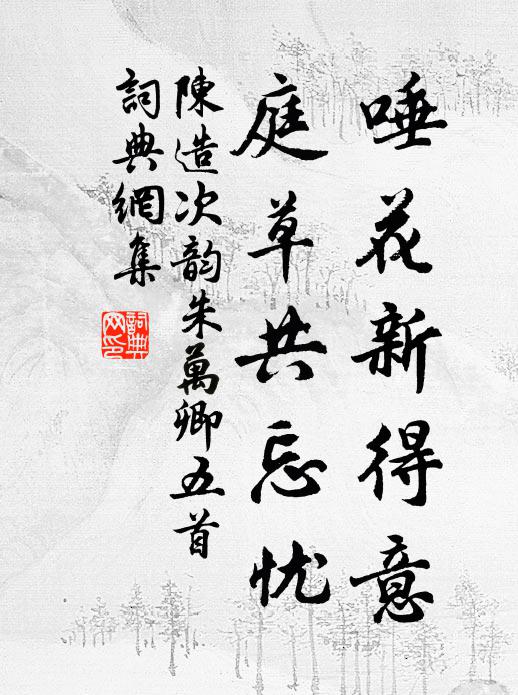 唾花新得意
庭草共忘忧
陳造次韵朱萬卿五首
詞典網集
詞典网印